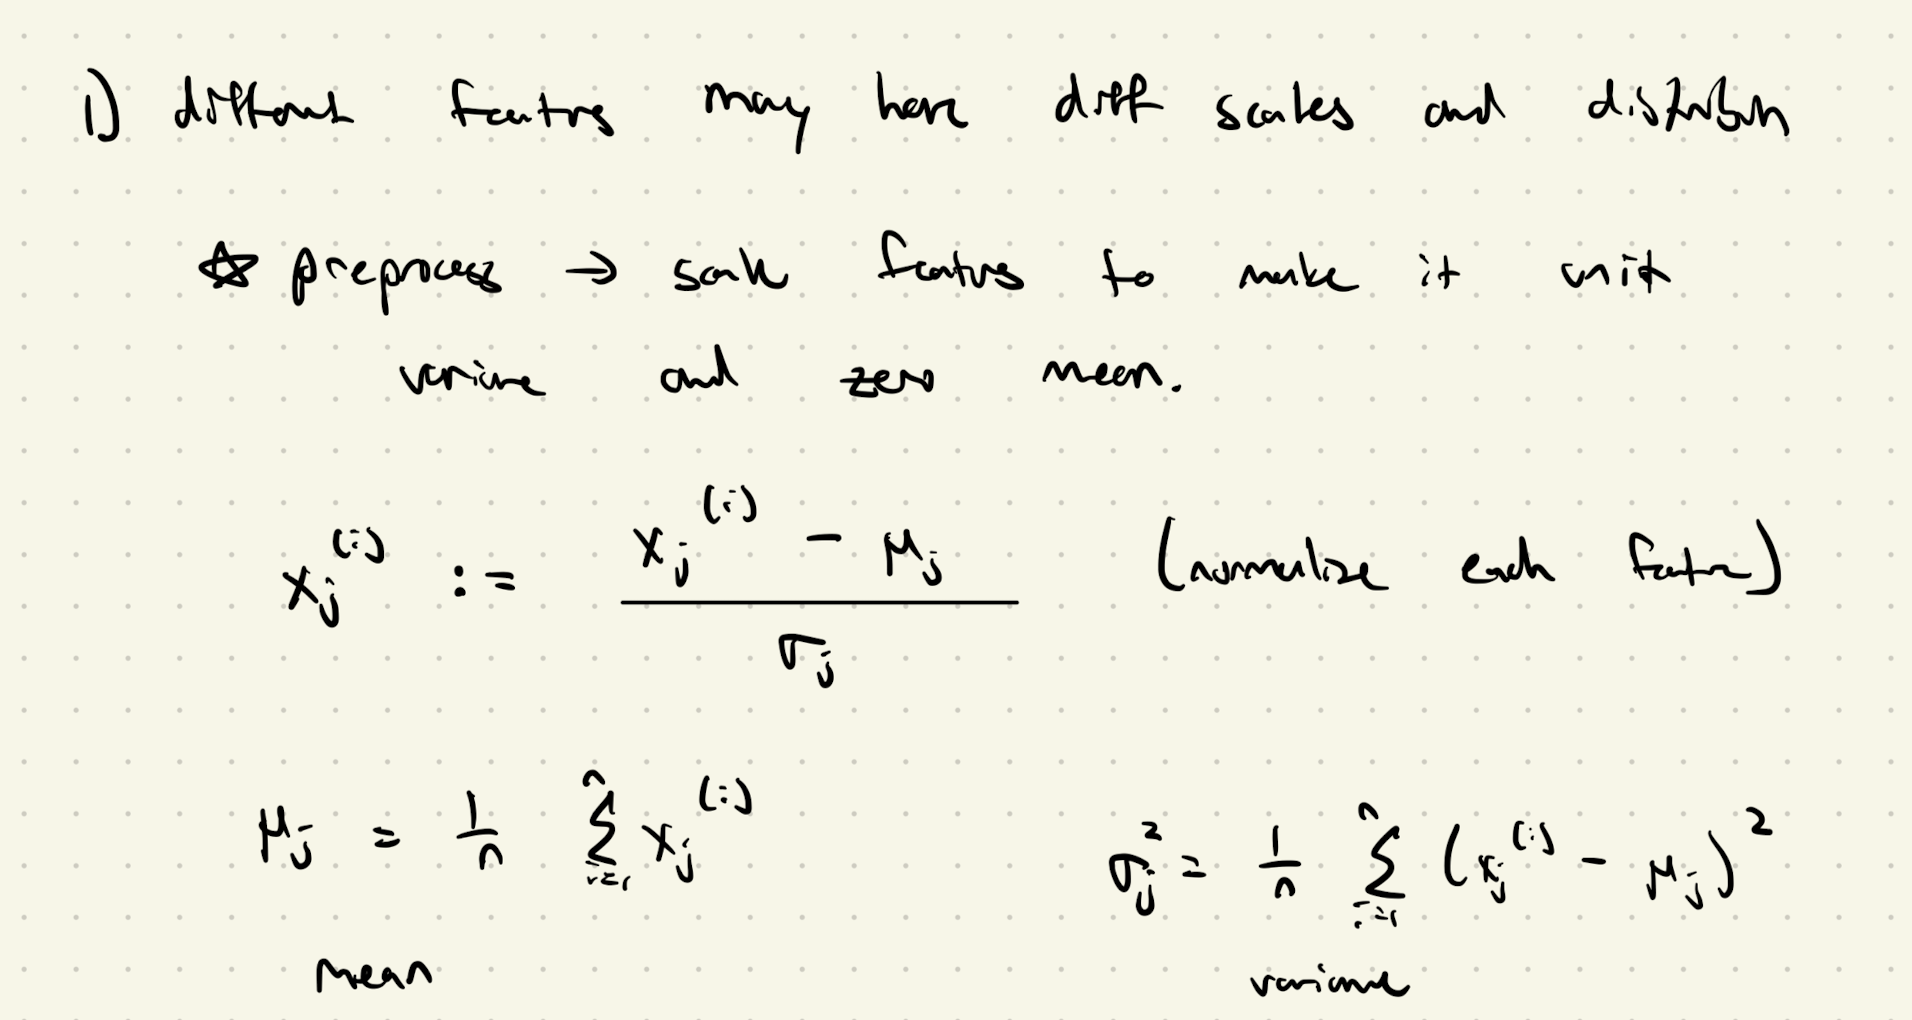 1) different features may have diff scales and distribution
☆ preprocess → scale features to make it unit
variance and zero mean.
x_j^(i) := (x_j^(i) - μ_j) / σ_j (normalize each feature)
μ_j = 1/n Σ_{i=1}^n x_j^(i) σ_j^2 = 1/n Σ_{i=1}^n (x_j^(i) - μ_j)^2
mean variance